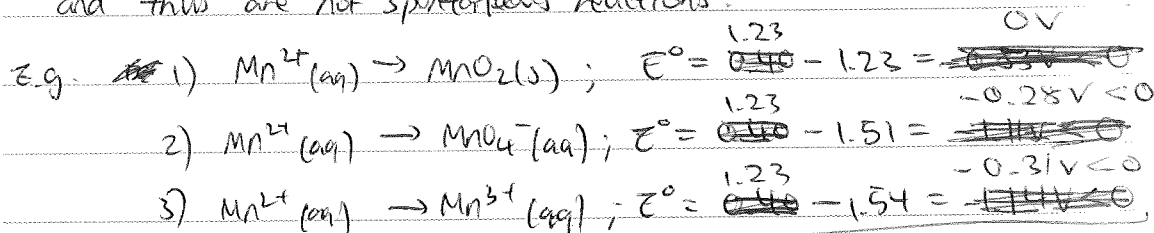 and thus are not spontaneous reactions.
E.g. 1) Mn²⁺(aq) → MnO₂(s) ; E° = 1.23 - 1.23 = 0V
2) Mn²⁺(aq) → MnO₄⁻(aq) ; E° = 1.23 - 1.51 = -0.28V < 0
3) Mn²⁺(aq) → Mn³⁺(aq) ; E° = 1.23 - 1.54 = -0.31V < 0